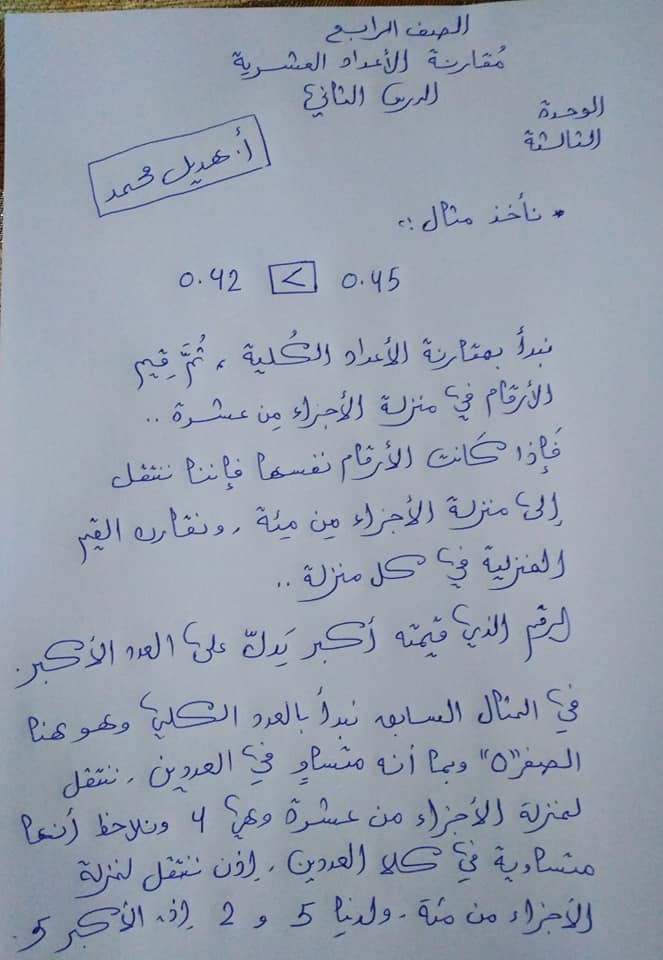 الصف الرابع
مُقارنة الأعداد العشرية
الدرس الثاني
الوحدة
الثالثة
أ. هديل محمد
* نأخذ مثال :
0.42 < 0.45
نبدأ بمقارنة الأعداد الكُلية ، ثُمَّ قِيم
الأرقام في منزلة الأجزاء مِن عشرة ..
فَإذا كَانت الأرقام نفسها فإننا ننتقل
إلى منزلة الأجزاء مِن مِئة ، ونقارن القيم
المنزلية في كل منزلة ..
الرقم الذي قيمته أكبر يَدلّ على العدد الأكبر.
في المثال السابق نبدأ بالعدد الكلي وهو هنا
الصفر "0" وبما أنه متساوٍ في العددين ، ننتقل
لمنزلة الأجزاء من عشرة وهي 4 ونلاحظ أنها
متساوية في كلا العددين ، إذن ننتقل لمنزلة
الأجزاء من مئة ، ولدينا 5 و 2 إذن الأكبر 5.